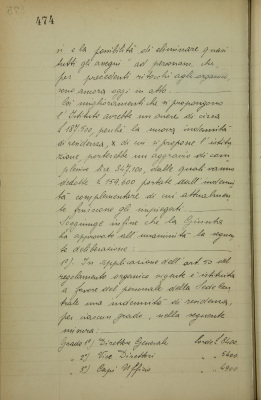 474
si e la possibilità di eliminare quasi
tutti gli assegni ad personam che,
per precedenti ritocchi agli organici,
sono ancora oggi in atto.
Coi miglioramenti che si propongono
l'Istituto avrebbe un onere di circa
L. 187.500, perché la nuova indennità
di residenza, di cui si propone l'istitu
zione, porterebbe un aggravio di com
plessive Lire 347.100, dalle quali vanno
dedotte L. 159.600 portate dall'indenni
tà complementare di cui attualmen
te fruiscono gli impiegati.
Soggiunge infine che la Giunta
ha approvato all'unanimità la seguen
te deliberazione:
1°) In applicazione dell'art. 50 del
regolamento organico vigente è istituita
a favore del personale della Sede Cen
trale una indennità di residenza,
per ciascun grado, nella seguente
misura:
Grado 1°) Direttore Generale lorde L.
" 2°) Vice Direttori " " 5400
" 3°) Capi Ufficio " " 4900